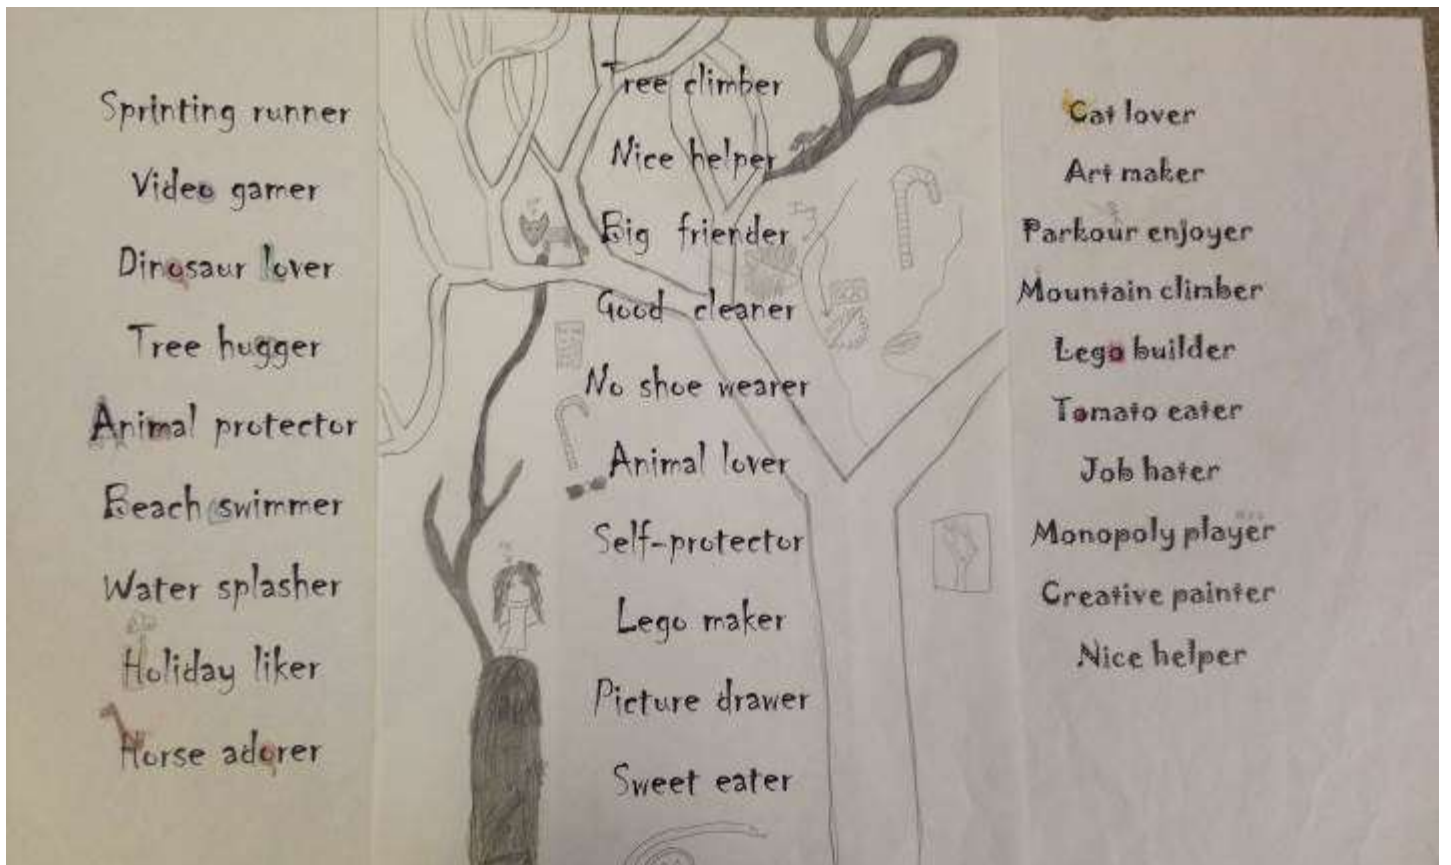 Sprinting runner
Video gamer
Dinosaur lover
Tree hugger
Animal protector
Beach swimmer
Water splasher
Holiday liker
Horse adorer
Tree climber
Nice helper
Big friender
Good cleaner
No shoe wearer
Animal lover
Self-protector
Lego maker
Picture drawer
Sweet eater
Cat lover
Art maker
Parkour enjoyer
Mountain climber
Lego builder
Tomato eater
Job hater
Monopoly player
Creative painter
Nice helper